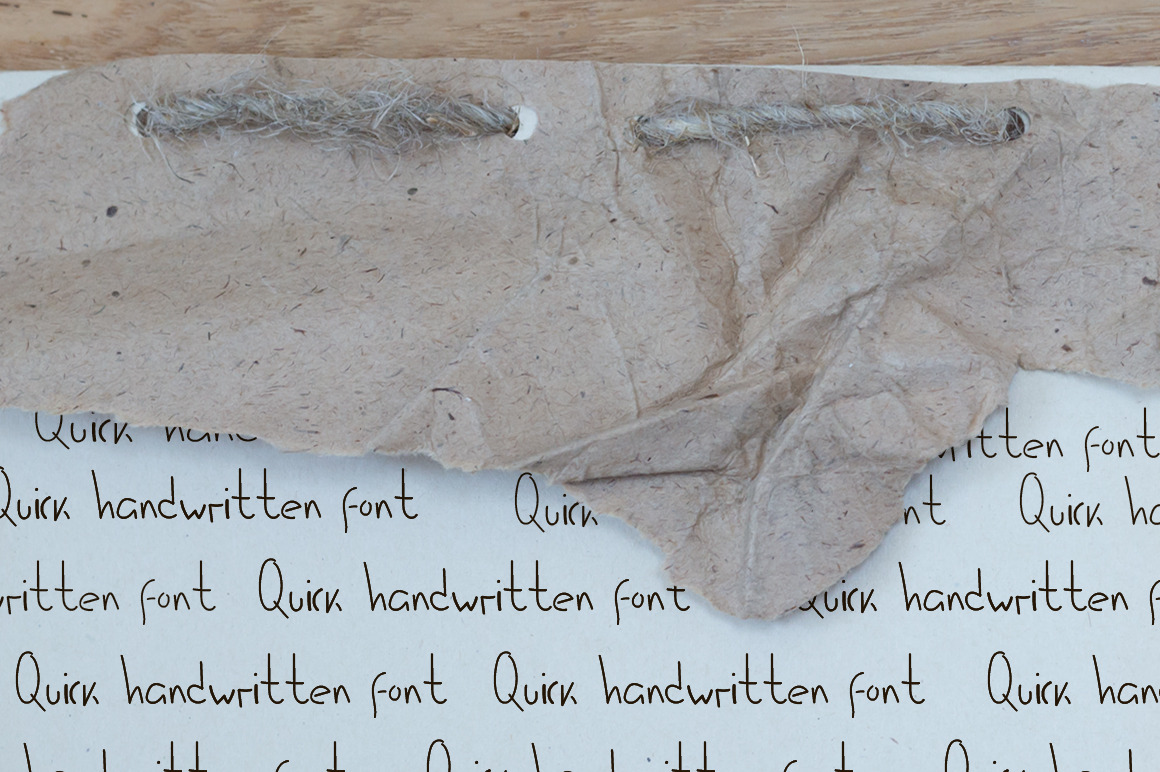 Quick
itten font
Quick handwritten font Quick nt Quick
ritten font Quick handwritten font Quick handwritten
Quick handwritten font Quick handwritten font Quick han
Quick